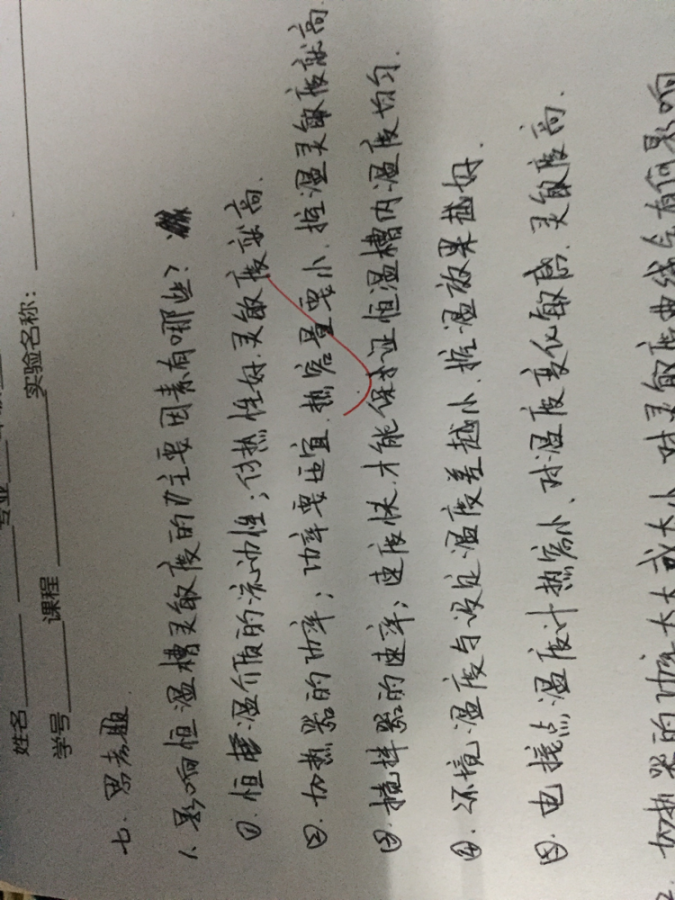 专业
姓名
学号 课程 实验名称:
七. 思考题
1. 影响恒温槽灵敏度的主要因素有哪些?
①. 恒温介质的流动性; 传热性好. 灵敏度就高.
②. 加热器的功率; 功率要适宜. 热容量要小. 控温灵敏度就高
③. 搅拌器的速率; 速度快. 才能保证恒温槽内温度均匀.
④. 环境温度与设定温度差越小. 控温效果越好.
⑤. 电接点温度计热容小、对温度变化敏感. 灵敏度高.
2. 加热器的功率太大或太小 对灵敏度曲线会有何影响